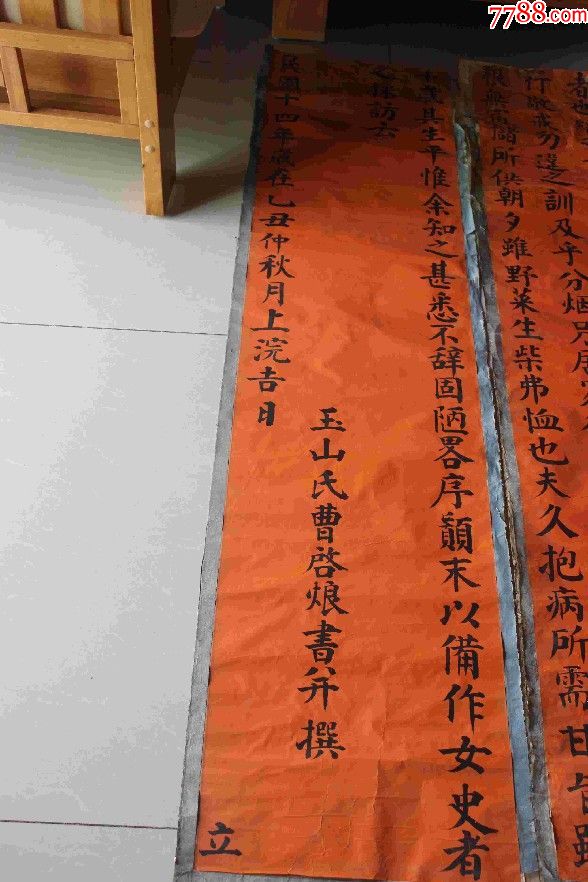 7788.com
行敬戒勿違之訓及乎分烟
無舊儲所供朝夕雖野菜生柴弗恤也夫久抱病所需甘旨雖
其生平惟余知之甚悉不辞固陋畧序顛末以備作女史者
採訪云
玉山氏曹啓烺書并撰
民國十四年歲在乙丑仲秋月上浣吉日
立